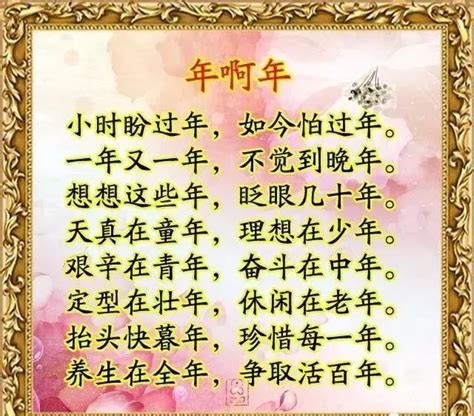 年啊年
小时盼过年，如今怕过年。
一年又一年，不觉到晚年。
想想这些年，眨眼几十年。
天真在童年，理想在少年。
艰辛在青年，奋斗在中年。
定型在壮年，休闲在老年。
抬头快暮年，珍惜每一年。
养生在全年，争取活百年。